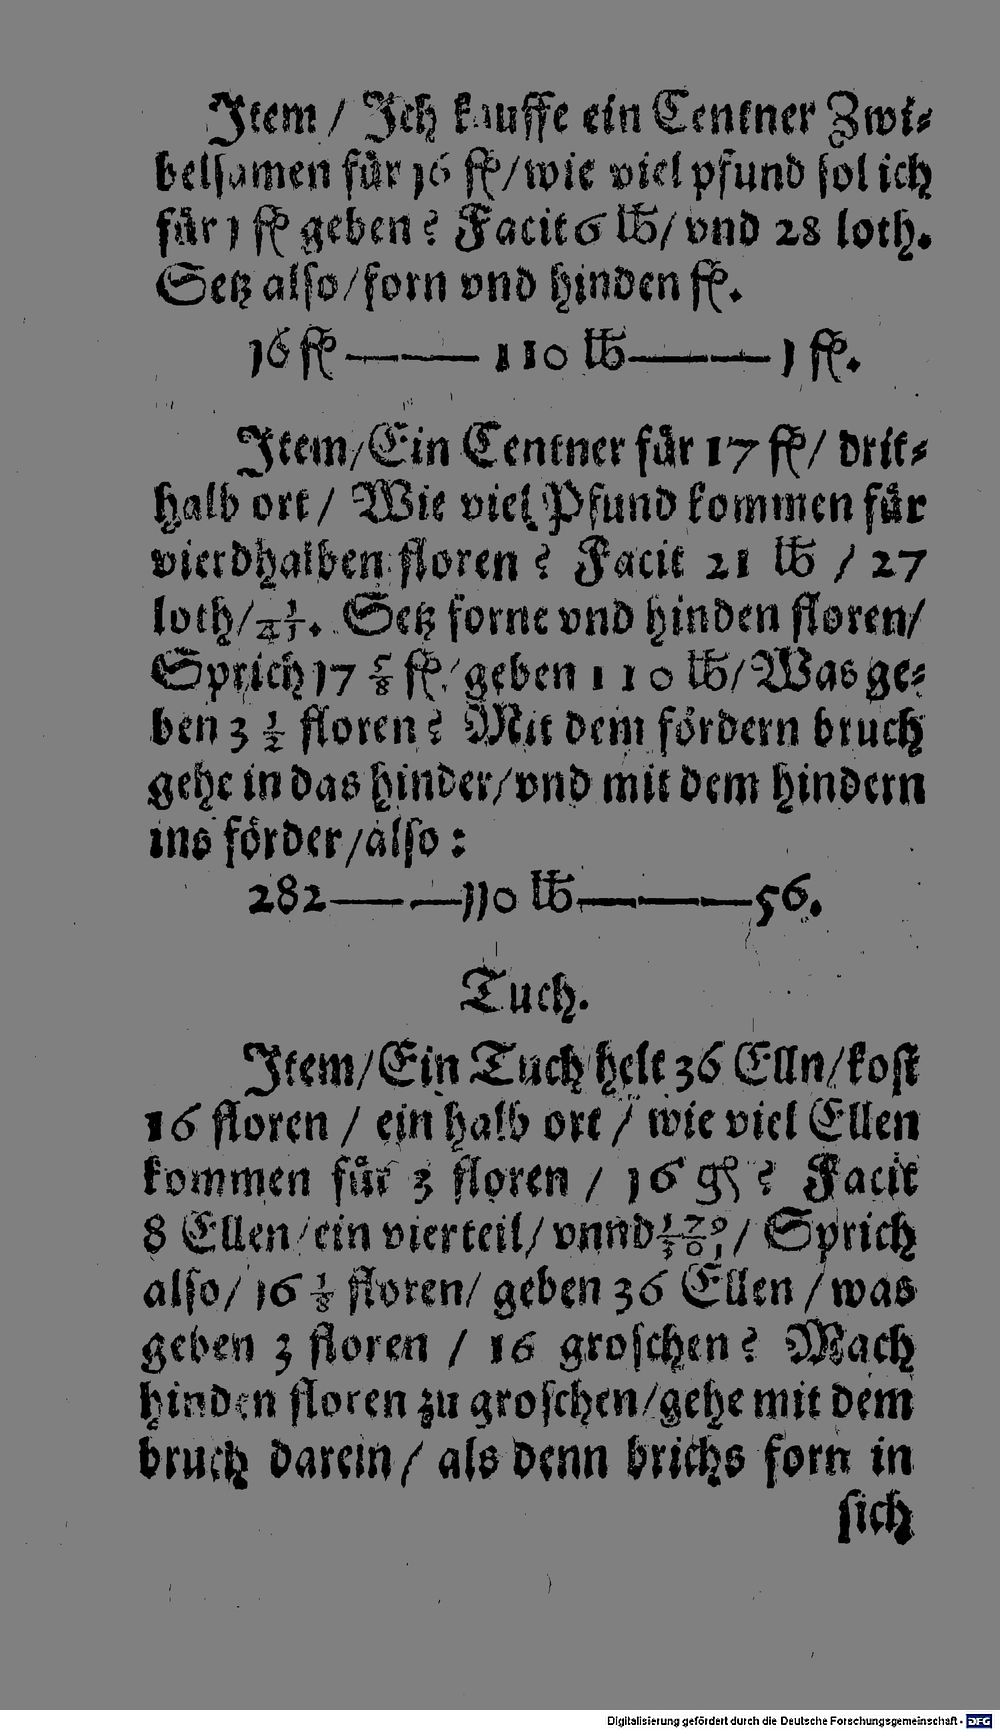 Item / Ich kauffe ein Centner Zwi⸗
belsamen für 16 fl / wie viel pfund sol ich
für 1 fl geben? Facit 6 lb / vnd 28 loth.
Setz also / forn vnd hinden fl.
16 fl —— 110 lb —— 1 fl.
Item / Ein Centner für 17 fl / drit⸗
halb ort / Wie viel Pfund kommen für
vierdhalben floren? Facit 21 lb / 27
loth /. Setz forne vnd hinden floren /
Sprich 17 5/8 fl / geben 110 lb / Was ge⸗
ben 3 1/2 floren? Mit dem fördern bruch
gehe in das hinder / vnd mit dem hindern
ins förder / also:
282 —— 110 lb —— 56.
Tuch.
Item / Ein Tuch helt 36 Elln / kost
16 floren / ein halb ort / wie viel Ellen
kommen für 3 floren / 16 gl? Facit
8 Ellen / ein vierteil / vnnd / Sprich
also / 16 1/8 floren / geben 36 Ellen / was
geben 3 floren / 16 groschen? Mach
hinden floren zu groschen / gehe mit dem
bruch darein / als denn brichs forn in
sich
Digitalisierung gefördert durch die Deutsche Forschungsgemeinschaft - DFG